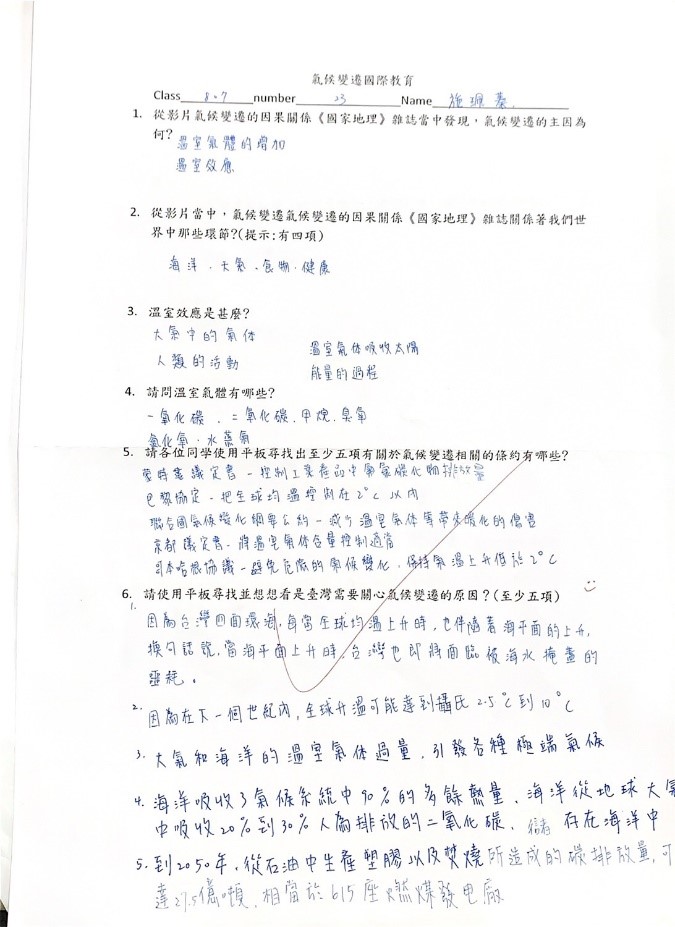 氣候變遷國際教育
Class 807 number 23 Name 施珮蓁
1. 從影片氣候變遷的因果關係《國家地理》雜誌當中發現,氣候變遷的主因為
何? 溫室氣體的增加
溫室效應
2. 從影片當中,氣候變遷氣候變遷的因果關係《國家地理》雜誌關係著我們世
界中那些環節?(提示:有四項)
海洋、大氣、食物、健康
3. 溫室效應是甚麼?
大氣中的氣体
人類的活動
溫室氣体吸收太陽
能量的過程
4. 請問溫室氣體有哪些?
一氧化碳、二氧化碳、甲烷、臭氧
氧化氮、水蒸氣
5. 請各位同學使用平板尋找出至少五項有關於氣候變遷相關的條約有哪些?
蒙特婁議定書-控制工業產品中氟氯碳化物排放量
巴黎協定-把全球均溫控制在2°C以內
聯合國氣候變化綱要公約-減少溫室氣体等帶來暖化的傷害
京都議定書-將溫室氣体含量控制適當
哥本哈根協議-避免危險的氣候變化,保持氣溫上升低於2°C
6. 請使用平板尋找並想想看是臺灣需要關心氣候變遷的原因?(至少五項)
1. 因為台灣四面環海,每當全球均溫上升時,也伴隨著海平面的上升,
換句話說,當海平面上升時,台灣也即將面臨被海水掩蓋的
噩耗。
2. 因為在下一個世紀內,全球升溫可能達到攝氏2.5°C到10°C
3. 大氣和海洋的溫室氣体過量,引發各種極端氣候
4. 海洋吸收了氣候系統中90%的多餘熱量、海洋從地球大氣
中吸收20%到30%人為排放的二氧化碳、儲存在海洋中
5. 到2050年,從石油中生產塑膠以及焚燒所造成的碳排放量,可
達27.5億噸,相當於615座燃煤發电廠